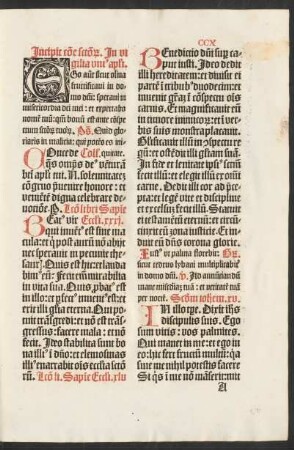 CCX
Incipit cõe sctõꝝ. In vi
gilia vniᵒ apłi.
EGo autē sicut oliua
fructificaui in
domo dñi: speraui in
misericordia dei mei: et expectabo
nomē tuū: qm̄ bonū est ante cõspe
ctum sctõꝝ tuoꝝ. Ps. Quid glo
riaris in malicia: qui potēs es ini
quitate. Coll.
qs̄ omp̄s deᵒ
bti apłi tui. N. solemnitatē
cõgruo p̄uenire honore: et
veniēte digna celebrare de
uocõne. P. Lcõ libri Sapiē
Eatᵒ vir Eccłi.xxxi.
qui inuētᵒ est sine ma
cula: et q̇ post aurū nõ abijt
nec sperauit in pecunie the
sauris. Quis est hic et laudabi
mᵒ eū: fecit enī mirabilia
in vita sua. Quis ꝓbatᵒ est
in illo et ꝑfectᵒ inuētᵒ est: et
erit illi gl̄ia eterna. Qui po
tuit trãsgredi: et nõ est trãs
gressus: facere mala: et nõ
fecit. Ideo stabilita sunt bo
na illiᵒ ĩ dño: et elemosinas
illiᵒ enarrabit oīs eccl̄ia scto
rū. Lcõ li. Sapiē Eccłi.xliiii
BEnedictio dñi suꝑ ca
put iusti. Ideo dedit
illi hereditatem: et diuisit ei
partē ĩ tribubᵒ duodecim: et
inuenit grãꝫ ĩ cõspectu oīs
carnis. Et magnificauit eū
in timore inimicoꝝ: et ĩ ver
bis suis monstra placauit.
Glorificauit illū in cõspectu
regū: et ostēdit illi gl̄iam suã.
In fide et lenitate ipsiᵒ sctm̄
fecit illū: et elegit illū ex omī
carne. Dedit illi cor ad p̄ce
pta: et legē vite et discipline
et excelsū fecit illū. Statuit
ei testamētū eternū: et circū
cinxit eū zona iusticie. Et in
duit eū dñs corona glorie.
Iustᵒ vt palma florebit:
sicut cedrus lybani multiplicabit̃
in domo dñi. V. Ad annũciãdū
mane miscdiaꝫ tuã: et veritatē tuã
per nocte. Scd̃m iohem.xv.
IN illo tꝑe. Dixit ihs
discipulis suis. Ego
sum vitis: vos palmites.
Qui manet in me: et ego in
eo: hic fert fructū multū: q̇a
sine me nihil potestis facere
Si q̇s ĩ me nõ mãserit: mit
A